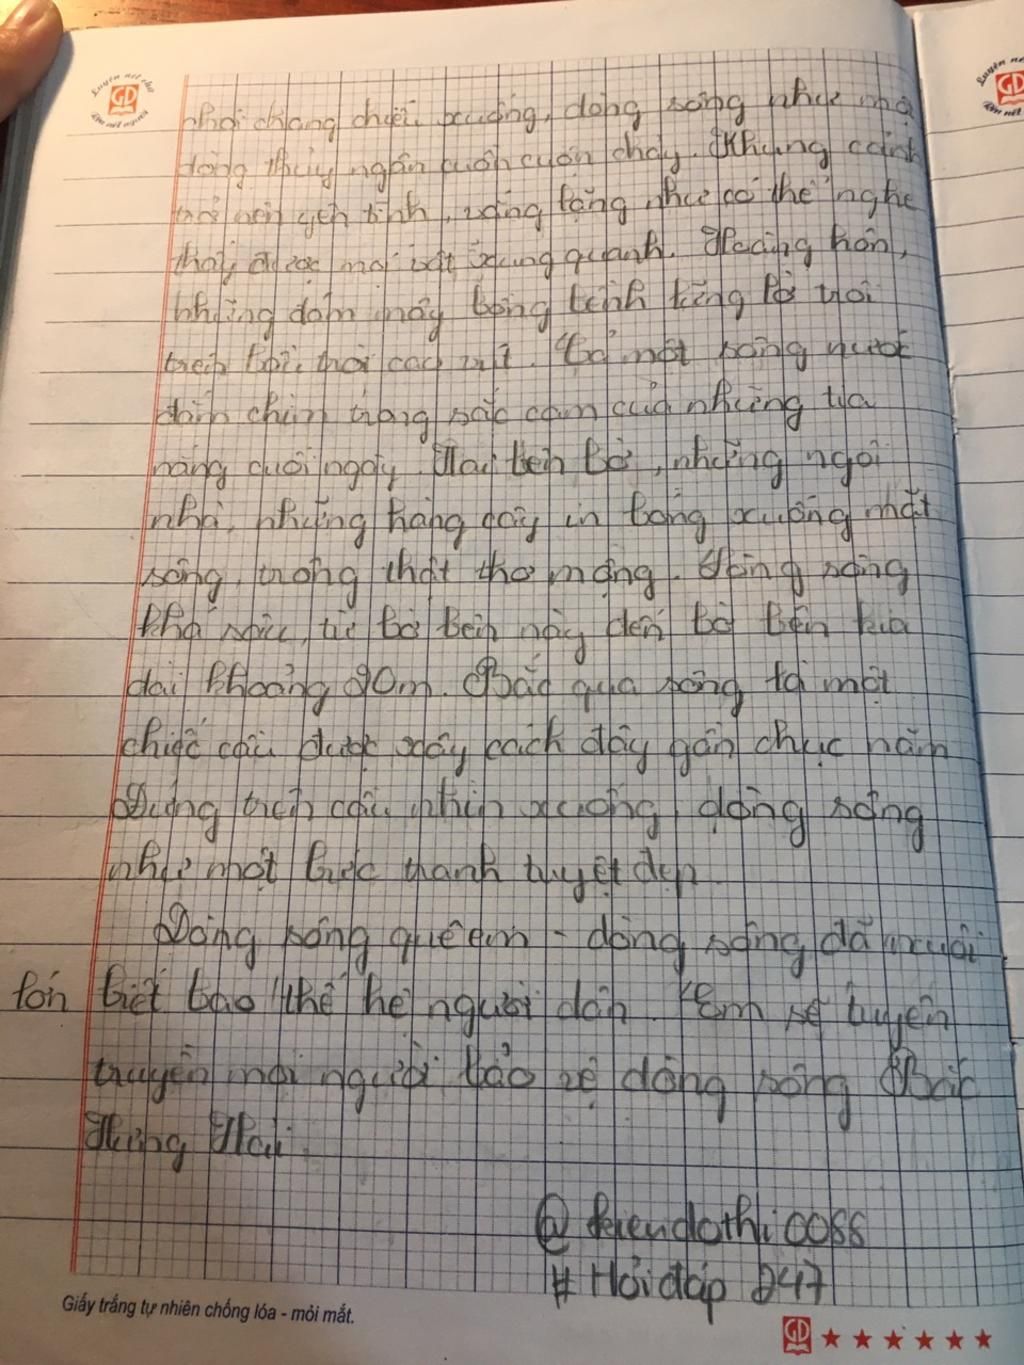 chói chang chiếu xuống, dòng sông như một
dòng thủy ngân cuồn cuộn chảy. Khung cảnh
trở nên yên tĩnh, vắng lặng như có thể nghe
thấy được mọi vật xung quanh. Hoàng hôn,
những đám mây bồng bềnh lững lờ trôi
trên bầu trời cao vút. Cả một sông nước
đắm chìm trong sắc cam của những tia
nắng cuối ngày. Hai bên bờ, những ngôi
nhà, những hàng cây in bóng xuống mặt
sông, trông thật thơ mộng. Dòng sông
khá sâu, từ bờ bên này đến bờ bên kia
dài khoảng 90m. Bắc qua sông là một
chiếc cầu được xây cách đây gần chục năm
Đứng trên cầu nhìn xuống, dòng sông
như một bức tranh tuyệt đẹp
Dòng sông quê em - dòng sông đã nuôi
lớn biết bao thế hệ người dân. Em sẽ tuyên
truyền mọi người bảo vệ dòng sông Bắc
Hưng Hải.
@kieudothi0088
#Hỏi đáp 247
Giấy trắng tự nhiên chống lóa - mỏi mắt.
GD
Luyện nét chữ
GD
Rèn nết người
Luyện nét
GD
Rèn nết